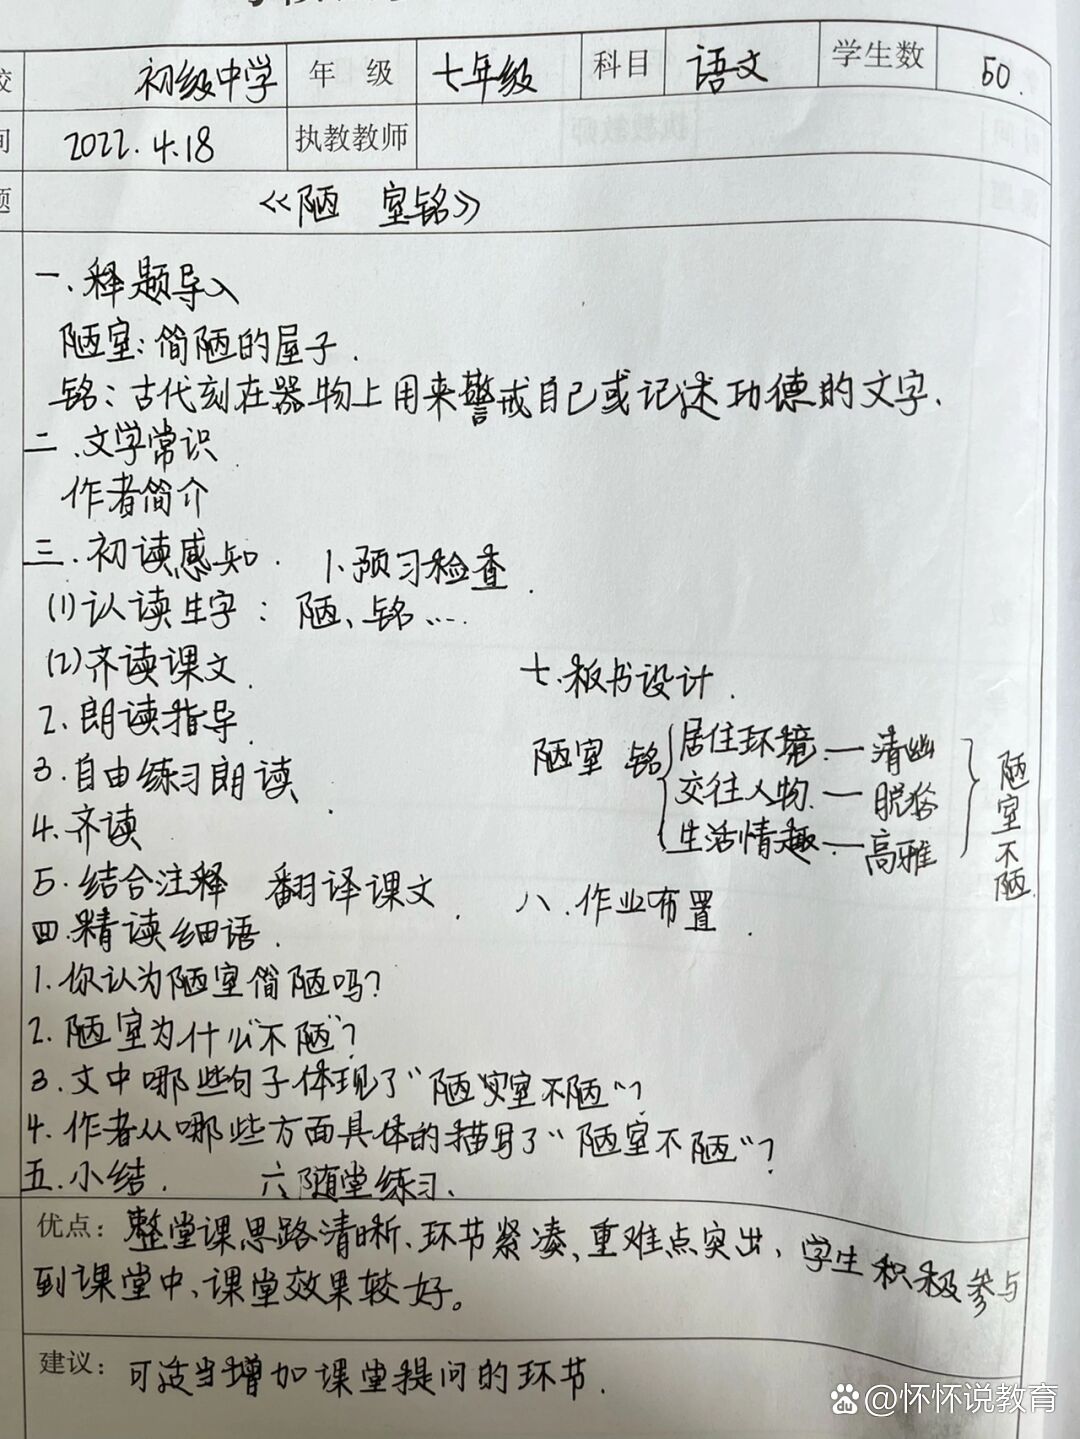 校 初级中学 年 级 七年级 科目 语文 学生数 50.
间 2022.4.18 执教教师
题 《陋 室铭》
一.释题导入
陋室:简陋的屋子.
铭:古代刻在器物上用来警戒自己或记述功德的文字.
二.文学常识
作者简介
三.初读感知. 1.预习检查.
(1)认读生字:陋、铭…
(2)齐读课文.
2.朗读指导.
3.自由练习朗读.
4.齐读
5.结合注释 翻译课文.
四.精读细语.
1.你认为陋室简陋吗?
2.陋室为什么“不陋”?
3.文中哪些句子体现了“陋室不陋”?
4.作者从哪些方面具体的描写了“陋室不陋”?
五.小结. 六.随堂练习.
七.板书设计.
陋室 铭
居住环境—清幽
交往人物.—脱俗
生活情趣—高雅
陋室不陋
八.作业布置.
优点:整堂课思路清晰、环节紧凑、重难点突出,学生积极参与
到课堂中、课堂效果较好。
建议:可适当增加课堂提问的环节.
@怀怀说教育